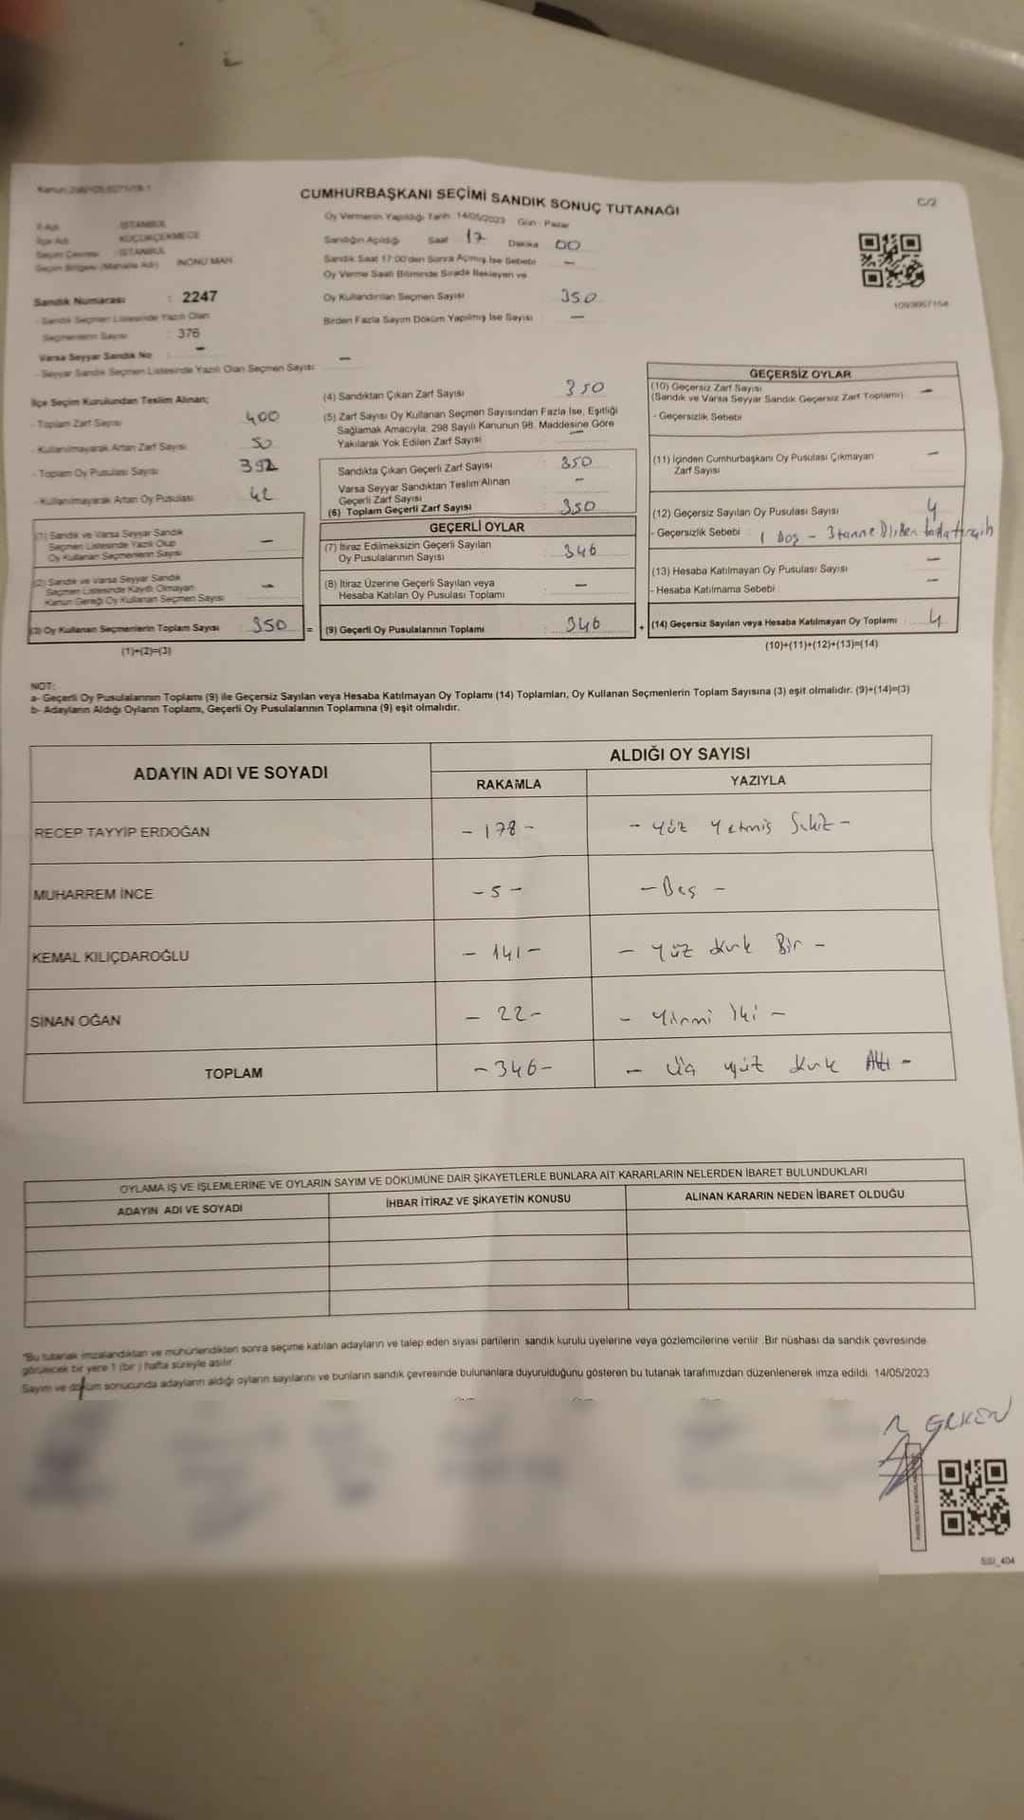 CUMHURBAŞKANI SEÇİMİ SANDIK SONUÇ TUTANAĞI
C/2
Oy Vermenin Yapıldığı Tarih 14/05/2023 Gün : Pazar
İSTANBUL
KÜÇÜKÇEKMECE
İSTANBUL
Seçim Bölgesi (Mahalle Adı) İNÖNÜ MAH.
Sandığın Açıldığı Saat 17 Dakika 00
Sandık Saat 17:00'den Sonra Açılmış İse Sebebi —
Oy Verme Saati Bitiminde Sırada Bekleyen ve
Oy Kullandırılan Seçmen Sayısı 350
Birden Fazla Sayım Döküm Yapılmış İse Sayısı —
Sandık Numarası : 2247
- Sandık Seçmen Listesinde Yazılı Olan
Seçmenlerin Sayısı : 376
Varsa Seyyar Sandık No : —
- Seyyar Sandık Seçmen Listesinde Yazılı Olan Seçmen Sayısı: —
İlçe Seçim Kurulundan Teslim Alınan;
- Toplam Zarf Sayısı 400
- Kullanılmayarak Artan Zarf Sayısı 50
- Toplam Oy Pusulası Sayısı 392
- Kullanılmayarak Artan Oy Pusulası 42
(1) Sandık ve Varsa Seyyar Sandık
Seçmen Listesinde Yazılı Olup
Oy Kullanan Seçmenlerin Sayısı —
(2) Sandık ve Varsa Seyyar Sandık
Seçmen Listesinde Kayıtlı Olmayan
Kanun Gereği Oy Kullanan Seçmen Sayısı —
(3) Oy Kullanan Seçmenlerin Toplam Sayısı 350 =
(1)+(2)=(3)
(4) Sandıktan Çıkan Zarf Sayısı 350
(5) Zarf Sayısı Oy Kullanan Seçmen Sayısından Fazla İse, Eşitliği
Sağlamak Amacıyla, 298 Sayılı Kanunun 98. Maddesine Göre
Yakılarak Yok Edilen Zarf Sayısı —
Sandıkta Çıkan Geçerli Zarf Sayısı 350
Varsa Seyyar Sandıktan Teslim Alınan
Geçerli Zarf Sayısı —
(6) Toplam Geçerli Zarf Sayısı 350
GEÇERLİ OYLAR
(7) İtiraz Edilmeksizin Geçerli Sayılan
Oy Pusulalarının Sayısı 346
(8) İtiraz Üzerine Geçerli Sayılan veya
Hesaba Katılan Oy Pusulası Toplamı —
(9) Geçerli Oy Pusulalarının Toplamı 346 +
GEÇERSİZ OYLAR
(10) Geçersiz Zarf Sayısı
(Sandık ve Varsa Seyyar Sandık Geçersiz Zarf Toplamı) —
- Geçersizlik Sebebi
(11) İçinden Cumhurbaşkanı Oy Pusulası Çıkmayan
Zarf Sayısı —
(12) Geçersiz Sayılan Oy Pusulası Sayısı 4
- Geçersizlik Sebebi : 1 Boş - 3 tanne
(13) Hesaba Katılmayan Oy Pusulası Sayısı —
- Hesaba Katılmama Sebebi : —
(14) Geçersiz Sayılan veya Hesaba Katılmayan Oy Toplamı 4
(10)+(11)+(12)+(13)=(14)
NOT:
a- Geçerli Oy Pusulalarının Toplamı (9) ile Geçersiz Sayılan veya Hesaba Katılmayan Oy Toplamı (14) Toplamları, Oy Kullanan Seçmenlerin Toplam Sayısına (3) eşit olmalıdır. (9)+(14)=(3)
b- Adayların Aldığı Oyların Toplamı, Geçerli Oy Pusulalarının Toplamına (9) eşit olmalıdır.
ADAYIN ADI VE SOYADI
ALDIĞI OY SAYISI
RAKAMLA YAZIYLA
RECEP TAYYİP ERDOĞAN - 178 - - Yüz Yetmiş Sekiz -
MUHARREM İNCE - 5 - - Beş -
KEMAL KILIÇDAROĞLU - 141 - - Yüz Kırk Bir -
SİNAN OĞAN - 22 - - Yirmi İki -
TOPLAM - 346 - - Üç yüz Kırk Altı -
OYLAMA İŞ VE İŞLEMLERİNE VE OYLARIN SAYIM VE DÖKÜMÜNE DAİR ŞİKAYETLERLE BUNLARA AİT KARARLARIN NELERDEN İBARET BULUNDUKLARI
ADAYIN ADI VE SOYADI İHBAR İTİRAZ VE ŞİKAYETİN KONUSU ALINAN KARARIN NEDEN İBARET OLDUĞU
"Bu tutanak imzalandıktan ve mühürlendikten sonra seçime katılan adayların ve talep eden siyasi partilerin sandık kurulu üyelerine veya gözlemcilerine verilir. Bir nüshası da sandık çevresinde
görülecek bir yere 1 (bir) hafta süreyle asılır.
Sayım ve döküm sonucunda adayların aldığı oyların sayılarını ve bunların sandık çevresinde bulunanlara duyurulduğunu gösteren bu tutanak tarafımızdan düzenlenerek imza edildi. 14/05/2023
ERKEN